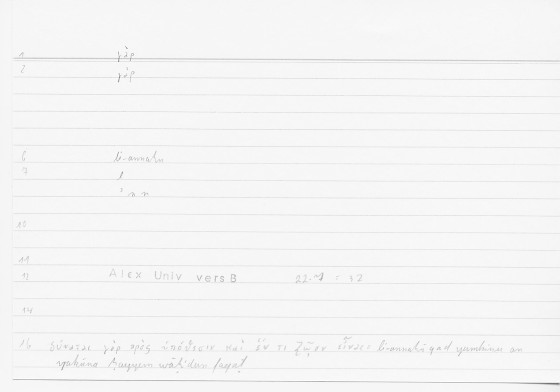 1 γάρ
2 γάρ
6 li-annahu
7 l
ʾ n n
10
11
13 Alex Univ vers B 22-7 : 12
14
16 δύναται γὰρ πρὸς ὑπόθεσιν καὶ ἕν τι ζῷον εἶναι: li-annahū qad yumkinu an
yakūna ḥayyun wāḥidun faqaṭ